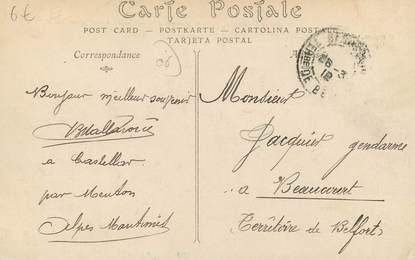 6€
Carte Postale
POST CARD – POSTKARTE – CARTOLINA POSTALE
TARJETA POSTAL
Correspondance
06
Bonjour meilleur souvenir
a Castellar
par Menton
Alpes Maritimes
26 -3
12
Monsieur
Jacquier gendarme
a Beaucourt
Territoire de Belfort